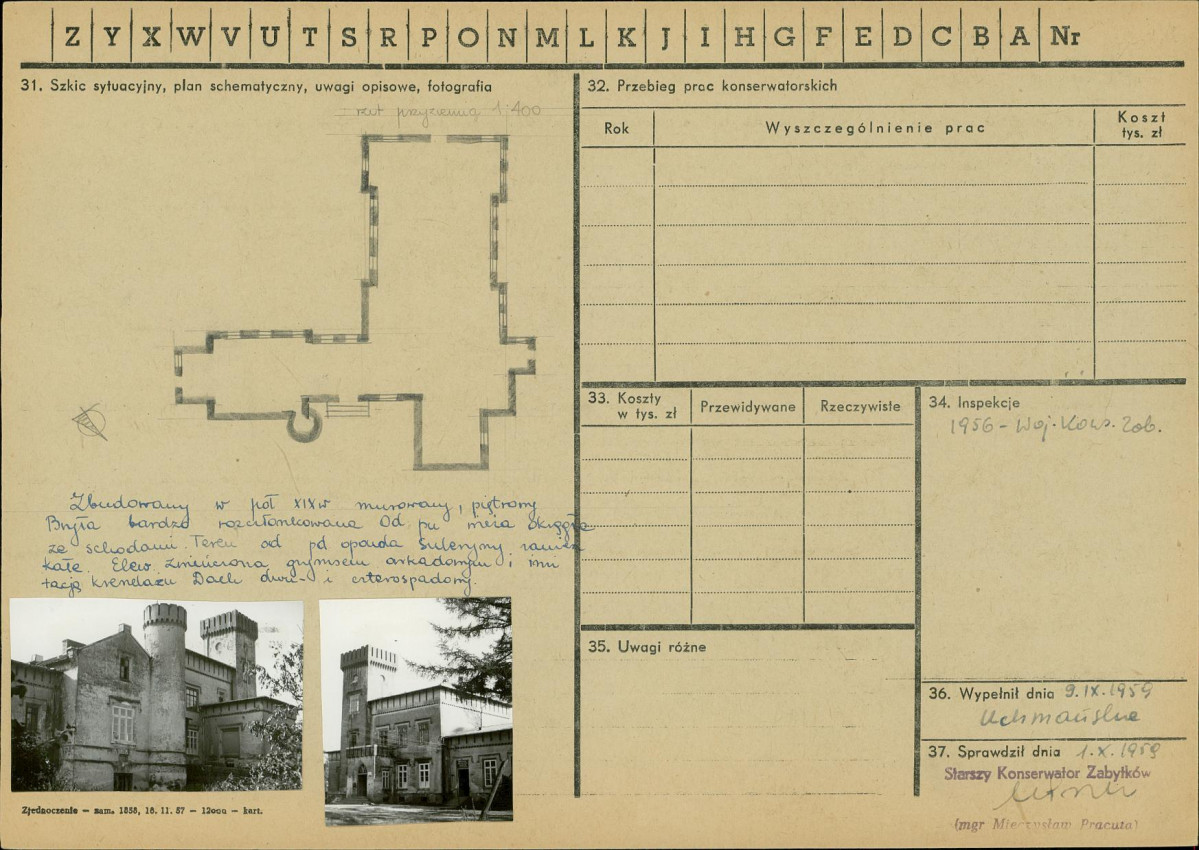 Z Y X W V U T S R P O N M L K J I H G F E D C B A Nr
31. Szkic sytuacyjny, plan schematyczny, uwagi opisowe, fotografia
rzut przyziemia 1:400
Zbudowany w poł XIXw murowany, piętrowy
Bryła bardzo rozczłonkowana Od
ze schodami. Teren od pd opada
Elew. zwieńczona gzymsem arkadowym i imi
tacją krenelażu Dach dwu- i czterospadowy.
Zjednoczenie — zam. 1858, 16. 11. 57 — 12000 — kart.
32. Przebieg prac konserwatorskich
Rok Wyszczególnienie prac Koszt tys. zł
33. Koszty w tys. zł Przewidywane Rzeczywiste
34. Inspekcje
1956 - Woj. Kons. Zab.
35. Uwagi różne
36. Wypełnił dnia 9.IX.1959
37. Sprawdził dnia 1.X.1959
Starszy Konserwator Zabytków
(mgr Mieczysław Pracuta)